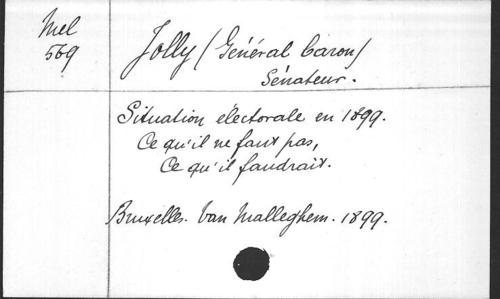 Mel
569
Jolly (Général baron)
Sénateur.
Situation électorale en 1899.
Ce qu'il ne faut pas,
Ce qu'il faudrait.
Bruxelles. Van Malleghem. 1899.